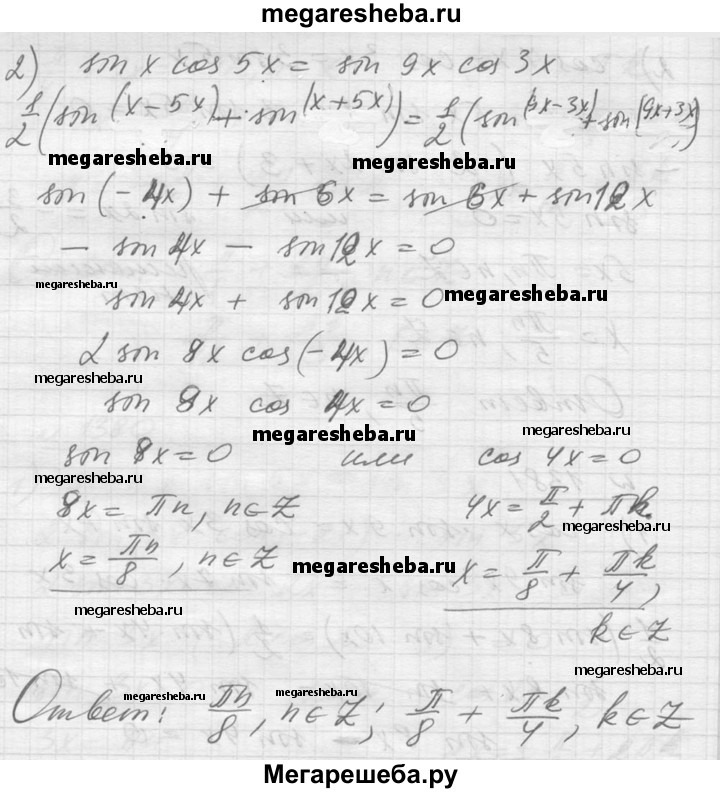 megaresheba.ru
2) sin x cos 5x = sin 9x cos 3x
1/2 (sin (x-5x) + sin (x+5x)) = 1/2 (sin (9x-3x) + sin (9x+3x))
megaresheba.ru megaresheba.ru
sin (-4x) + sin 6x = sin 6x + sin 12x
- sin 4x - sin 12x = 0
megaresheba.ru
sin 4x + sin 12x = 0 megaresheba.ru
2 sin 8x cos(-4x) = 0
megaresheba.ru
sin 8x cos 4x = 0
megaresheba.ru
sin 8x = 0 или cos 4x = 0
megaresheba.ru
8x = πn, n∈Z 4x = π/2 + πk
megaresheba.ru
x = πn/8, n∈Z megaresheba.ru x = π/8 + πk/4,
megaresheba.ru
k∈Z
megaresheba.ru
megaresheba.ru megaresheba.ru
Ответ: πn/8, n∈Z; π/8 + πk/4, k∈Z
Мегарешеба.ру